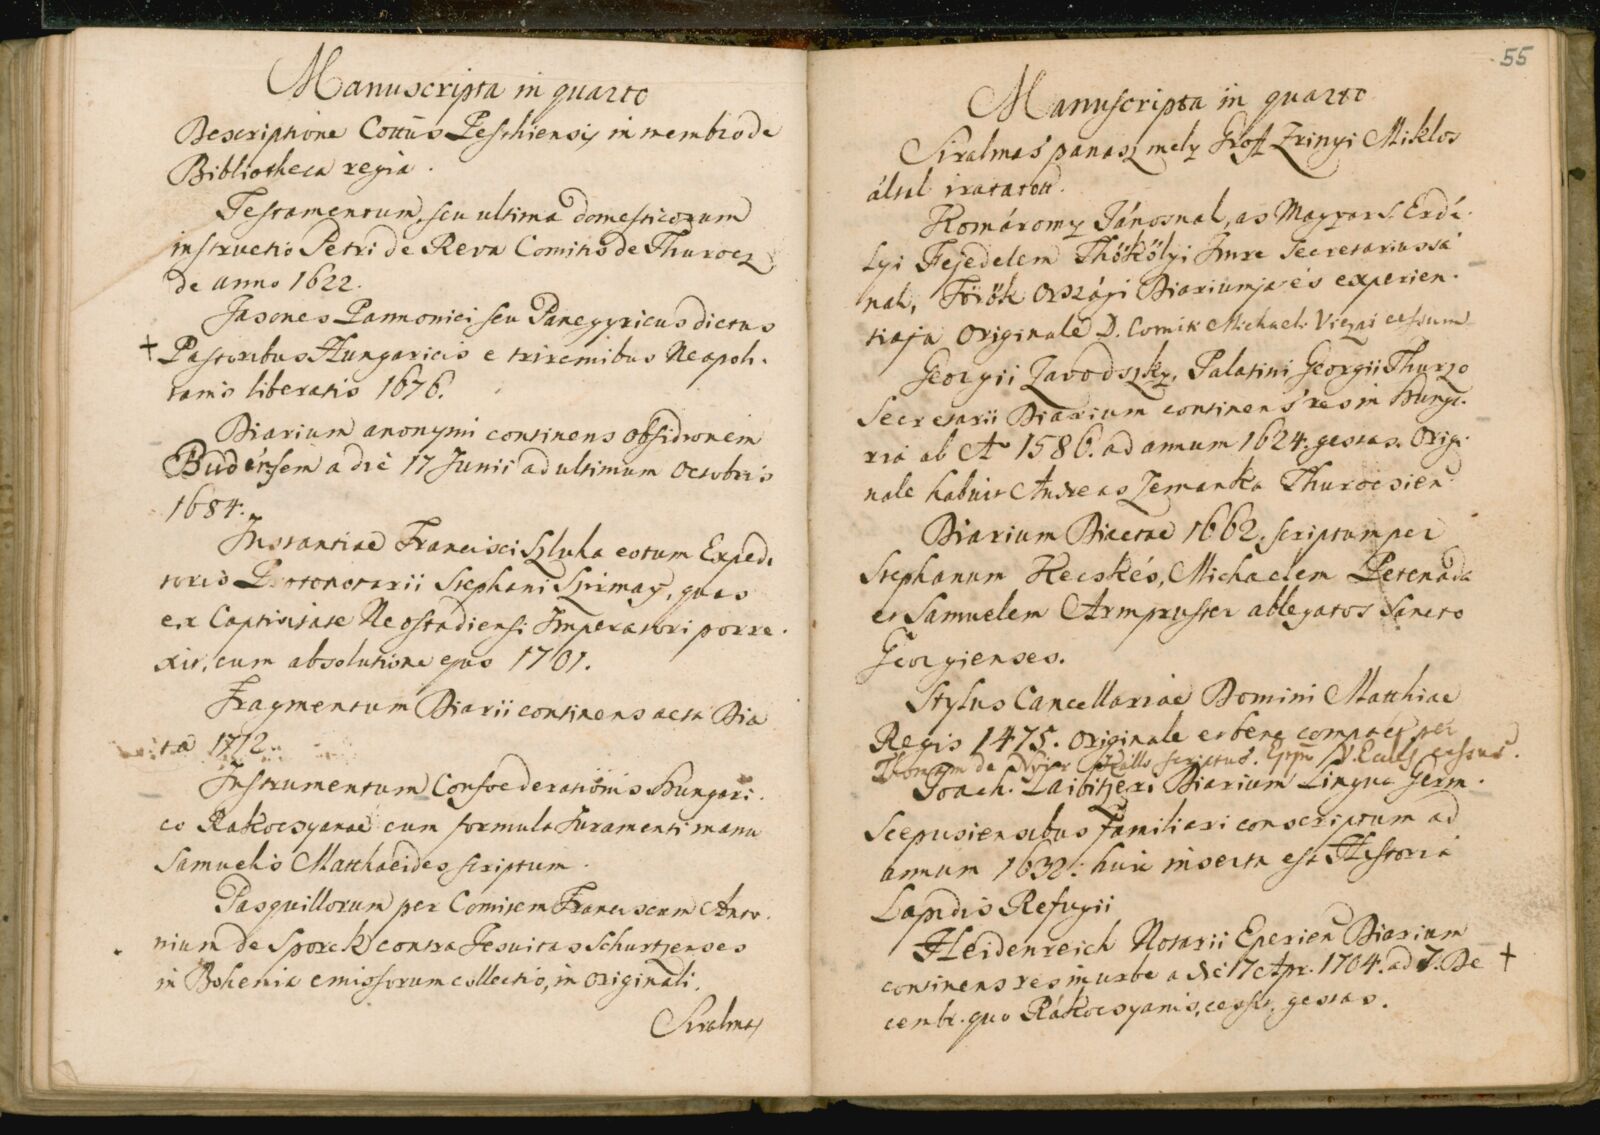 Manuscripta in quarto
Descriptione Cottus Pesthiensis in membrode
Bibliotheca regia.
Testamentum, seu ultima domesticorum
instructio Petri de Reva Comitis de Thurocz
de anno 1622.
Jasones Pannonici seu Panegyricus dictus
+ Pastoribus Hungaricis e triremibus Neapoli-
tanis liberatis 1676.
Diarium anonymi continens obsidionem
Budensem a die 17 Junii ad ultimum Octobris
1684.
Instantiae Francisci Szluha eotum Expedi
toris Protonotarii Stephani Szirmay, quas
ex Captivitate Neostadiensi Imperatori porre-
xit, cum absolutione ejus 1701.
Fragmentum Diarii continens acta Diae
ta 1712.
Instrumentum Confoederationis Hungari-
co Rakoczyanae cum formula Juramenti manu
Samuelis Matthaeides scriptum.
Pasquillorum per Comitem Franciscum Anto-
nium de Sporck contra Jesuitas Schurtzenses
in Bohemia emissorum collectio, in originali.
Siralmas
55
Manuscripta in quarto
Siralmas panasz mely Groff Zrinyi Miklos
által iratatott.
Komáromy Jánosnak, as Magyar s Erdé-
lyi Fejedelem Thököly Imre Secretariussá
nak, Török Országi Diariumja és experien-
tiaja Originale D. Comit. Michael. Viczai cessum
Georgii Zavodszky, Palatini Georgii Thurzo
Secretarii Diarium continens res in Hunga-
ria ab A° 1586. ad annum 1624. gestas. Origi-
nale habuit Andreas Zemanka Thurocsien
Diarium Diaetae 1662. scriptum per
Stephanum Kecskés, Michaelem Petenáda
et Samuelem Armpruster ablegatos Sancto
Georgienses.
Stylus Cancellariae Domini Matthiae
Regis 1475. Originale et bene compact. per
Thomam de scriptus. cessus.
Joach. Laibitzeri Diarium Lingua Germ.
Scepusiensibus familiari conscriptum ad
annum 1632. huic inserta est Historia
Lapidis Refugii
Heidenreich Notarii Eperien Diarium
continens res in urbe a die 17 Apr. 1704. ad 7. De +
cembr. quo Rákoczyanis, cessit, gestas.